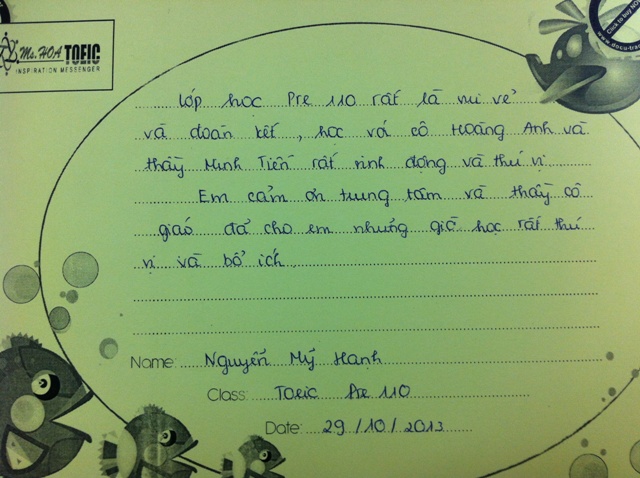 Ms. HOA TOEIC
INSPIRATION MESSENGER
Click to buy NO
www.docu-tra
Lớp học Pre 110 rất là vui vẻ
và đoàn kết, học với cô Hoàng Anh và
thầy Minh Tiến rất sinh động và thú vị
Em cảm ơn trung tâm và thầy cô
giáo đã cho em những giờ học rất thú
vị và bổ ích.
Name: Nguyễn Mỹ Hạnh
Class: Toeic Pre 110
Date: 29/10/2013